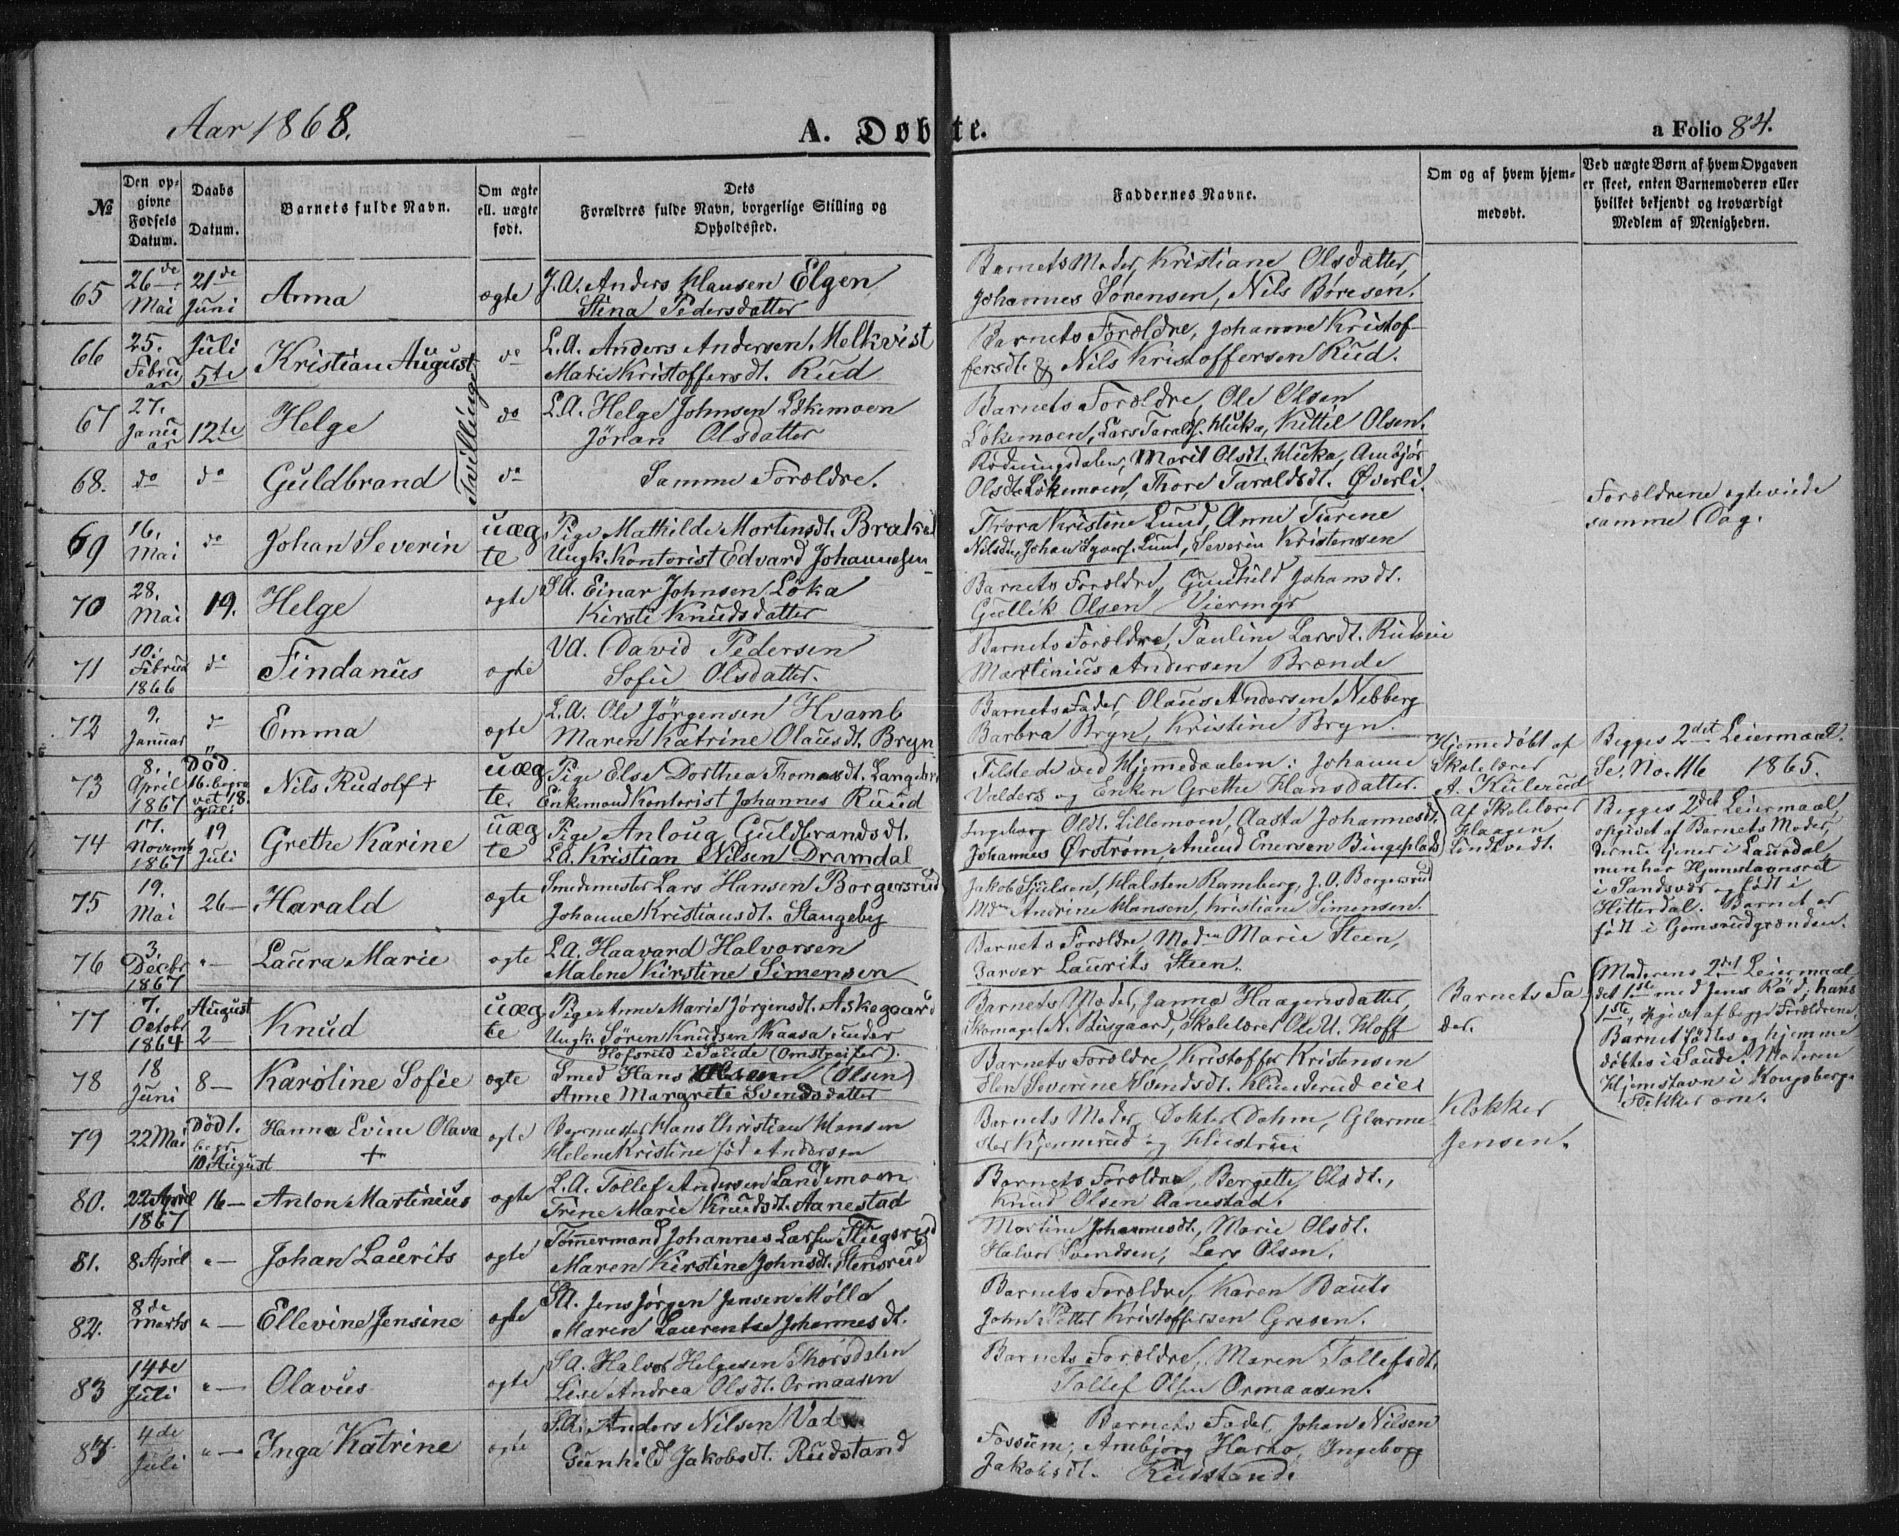 Aar 1868.
A. Døbte.
a Folio 84.
№
Den op-
givne
Fødsels
Datum.
Daabs
Datum.
Barnets fulde Navn.
Om ægte
ell. uægte
født.
Dets
Forældres fulde Navn, borgerlige Stilling og
Opholdssted.
Faddernes Navne.
Om og af hvem hjem-
medøbt.
Ved uægte Børn af hvem Opgaven
er skeet, enten Barnemoderen eller
hvilket bekjendt og troværdigt
Medlem af Menigheden.
65 26de Mai 21de Juni Anna ægte J.A. Anders Hansen Elgen
Stina Pedersdatter
Barnets Moder, Kristiane Olsdatter,
Johannes Sørensen, Nils Børesen.
66 25. Februar Juli 5te Kristian August do L.A. Anders Andersen Melkvist
Mari Kristoffersdt. Rud
Barnets Forældre, Johanne Kristof-
fersdt. & Nils Kristoffersen Rud.
67 27. Januar 12te Helge do L.A. Helge Johnsen Løkemoen
Jøran Olsdatter
Tvillinger
Barnets Forældre, Ole Olsen
Løkemoen, Lars Taraldsf. Kluka, Kittil Olsen.
68. do do Guldbrand do Samme Forældre.
Rødningsdalen, Marit Olsdt. Kluka, Ambjør
Olsdt. Løkemoen, Thore Taraldsdt. Øverli.
69 16. Mai do Johan Severin uægte Pige Mathilde Mortensdt. Brakei
Ungk. Kontorist Edvard Johannesen
Thora Kristine Lund, Anne Tarene
Nilsdt., Johan Syversf. Lund, Severin Kristensen
Forældrene egteviede
samme Dag.
70 28. Mai 19. Helge egte S.A. Einar Johnsen Løka
Kirsti Knudsdatter
Barnets Forældre, Gunhild Johansdt.
Gullik Olsen Viermyr
71 10. Februar 1866 do Findanus egte Vd. David Pedersen
Sofie Olsdatter.
Barnets Forældre, Pauline Larsdt. Rudseie
Martinius Andersen Brænde
72 9. Januar do Emma egte L.A. Ole Jørgensen Hvamb
Maren Katrine Olausdt. Bryn
Barnets Fader, Olaus Andersen Nebberg
Barbra Bryn, Kristine Bryn.
73 8. April 1867 Død. 16. begra
vet 18. Juli Nils Rudolf + uægte. Pige Else Dorthea Thomasdt.
Enkemand Kontorist Johannes Ruud
Tilstede ved Hjemmedaaben: Johanne
Valders og Enken Grethe Hansdatter.
Hjemmedøbt af
Skolelærer
A. Kulerud
Begges 2det Leiermaal.
Se No. 116 1865.
74 17. Novemb 1867 19 Juli Grethe Karine uægte Pige Anloug Guldbrandsdt.
L.A. Kristian Nilsen Dramdal
Ingeborg Oldt. Lillemoen, Aasta Johannesdt.
Johannes Ørstrøm, Amund Enersen Bingeplads
Af Skolelærer
Haagen
Lindtvedt.
Begges 2det Leiermaal,
opgivet af Barnets Moder,
denne tjener i Laurdal
men har Hjemstavnsret
i Sandsvær og født i
Hitterdal. Barnet er
født i Gomsrudgrænden.
75 19. Mai 26— Harald egte Smedmester Lars Hansen Borgersrud
Johanne Kristiansdt. Stangeby
Jakob Sjulsen, Halsten Ramberg, J.O. Borgersrud
Mdm Andrine Hansen, Kristiane Simensen.
76 3. Decbr 1867 „— Laura Marie egte L.A. Haavard Halvorsen
Malene Kirstine Simensen
Barnets Forældre, Madm Marie Steen,
Garver Laurits Steen.
77 7. Octobr 1864 August 2— Knud uægte Pige Anne Marie Jørgensdt. Askegaard
Ungk. Søren Knudsen Kaasa under
Hofsrud i Saude (Omstreifer).
Barnets Moder, Janna Haagensdatter,
Skomager N. Busgaard, Skolelærer Ole U. Hoff
Barnets Fa-
der.
Moderens 2det Leiermaal,
det 1ste med Jens Rød; hans
1ste, opgivet af begge Forældrene.
Barnet fødtes og hjemme
døbtes i Saude. Moderen
Hjemstavn i Kongsberg.
Fikker om.
78 18 Juni 8— Karoline Sofie egte Smed Hans Olsen (Olsen)
Anne Margrete Svendsdatter
Barnets Forældre, Kristoffer Kristensen
Elen Severine Svendsdt. Klunderud eiet
79 22 Mai Død 1. begr. 10 August Hanna Evine Olava + egte Bergmester Hans Christian Hansen
Helene Kristine fød Andersen
Barnets Moder, Doktor Dahm, Glarme-
ster Kjennerud og Hustru
Klokker
Jensen.
80. 22 April 1867 16— Anton Martinius egte L.A. Tollef Andersen Landemoen
Trine Marie Knudsdt. Aanestad
Barnets Forældre, Bergette Olsdt.,
Knud Olsen Aanestad.
81. 8 April „— Johan Laurits egte Tømmermand Johannes Larsen
Maren Kirstine Johnsdt. Stensrud
Martine Johannesdt., Marie Olsdt.
Halvor Svendsen, Lars Olsen.
82. 8de Marts „— Ellevine Jensine egte S.A. Jens Jørgen Jensen Mølla
Maren Laurentse Johannesdt.
Barnets Forældre, Karen Bauts
John Petter Kristoffersen Grisen.
83 14de Juli „— Olavus egte S.A. Halvor Helgesen Thorsdalen
Lise Andrea Olsdt. Ormaasen
Barnets Forældre, Maren Tollefsdt.
Tollef Olsen Ormaasen.
84. 4de Juli „— Inga Katrine egte S.A. Anders Nilsen
Gunhild Jakobsdt. Rudstand
Barnets Fader, Johan Nilsen
Fossum, Ambjørg Harbo, Ingeborg
Jakobsdt. Rudstand.